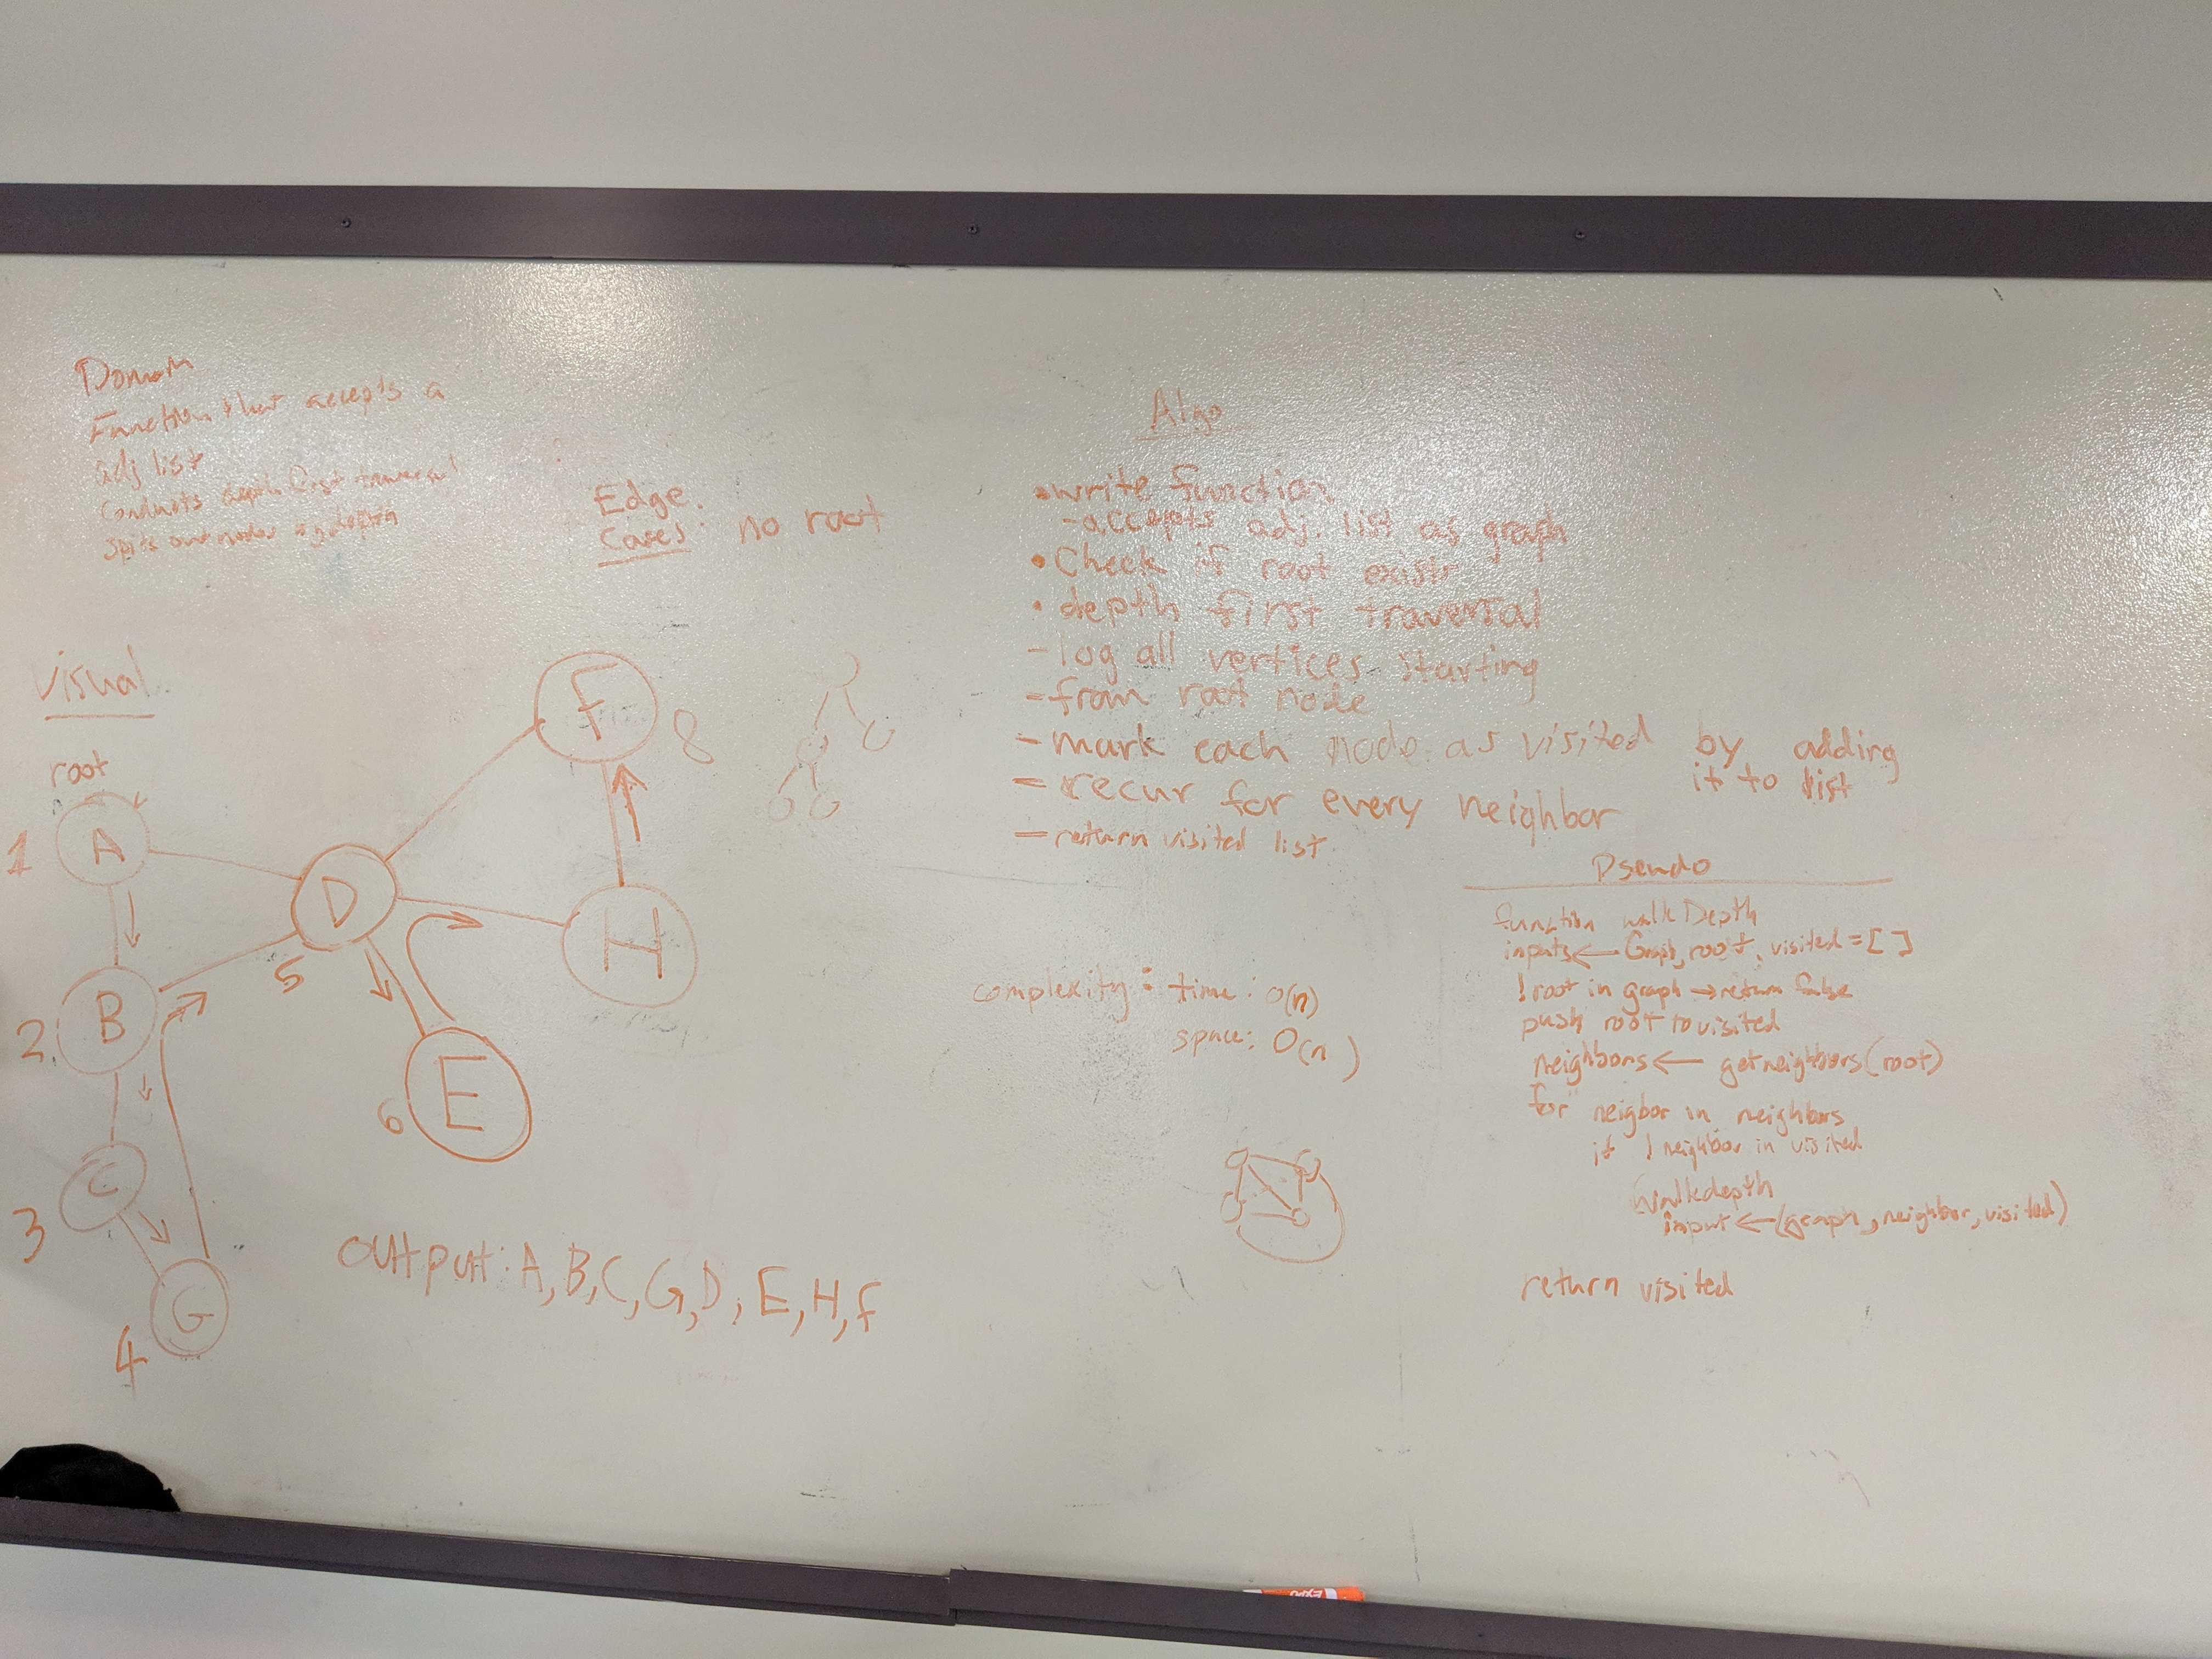 Domain
Function that accepts a
adj list
Conducts depth first traversal
spits out nodes by depth
Edge
Cases: no root
Visual
root
A
1
B
2
C
3
G
4
D
5
E
6
F
8
H
output: A, B, C, G, D, E, H, f
Algo
• write function
- accepts adj. list as graph
• Check if root exists
• depth first traversal
- log all vertices starting
- from root node
- mark each node as visited by adding
it to list
- recur for every neighbor
- return visited list
complexity: time: O(n)
space: O(n)
Pseudo
function walkDepth
inputs ← Graph, root, visited = [ ]
! root in graph → return false
push root to visited
neighbors ← getneighbors(root)
for neigbor in neighbors
if ! neighbor in visited
walkdepth
input ← (graph, neighbor, visited)
return visited
EXPO